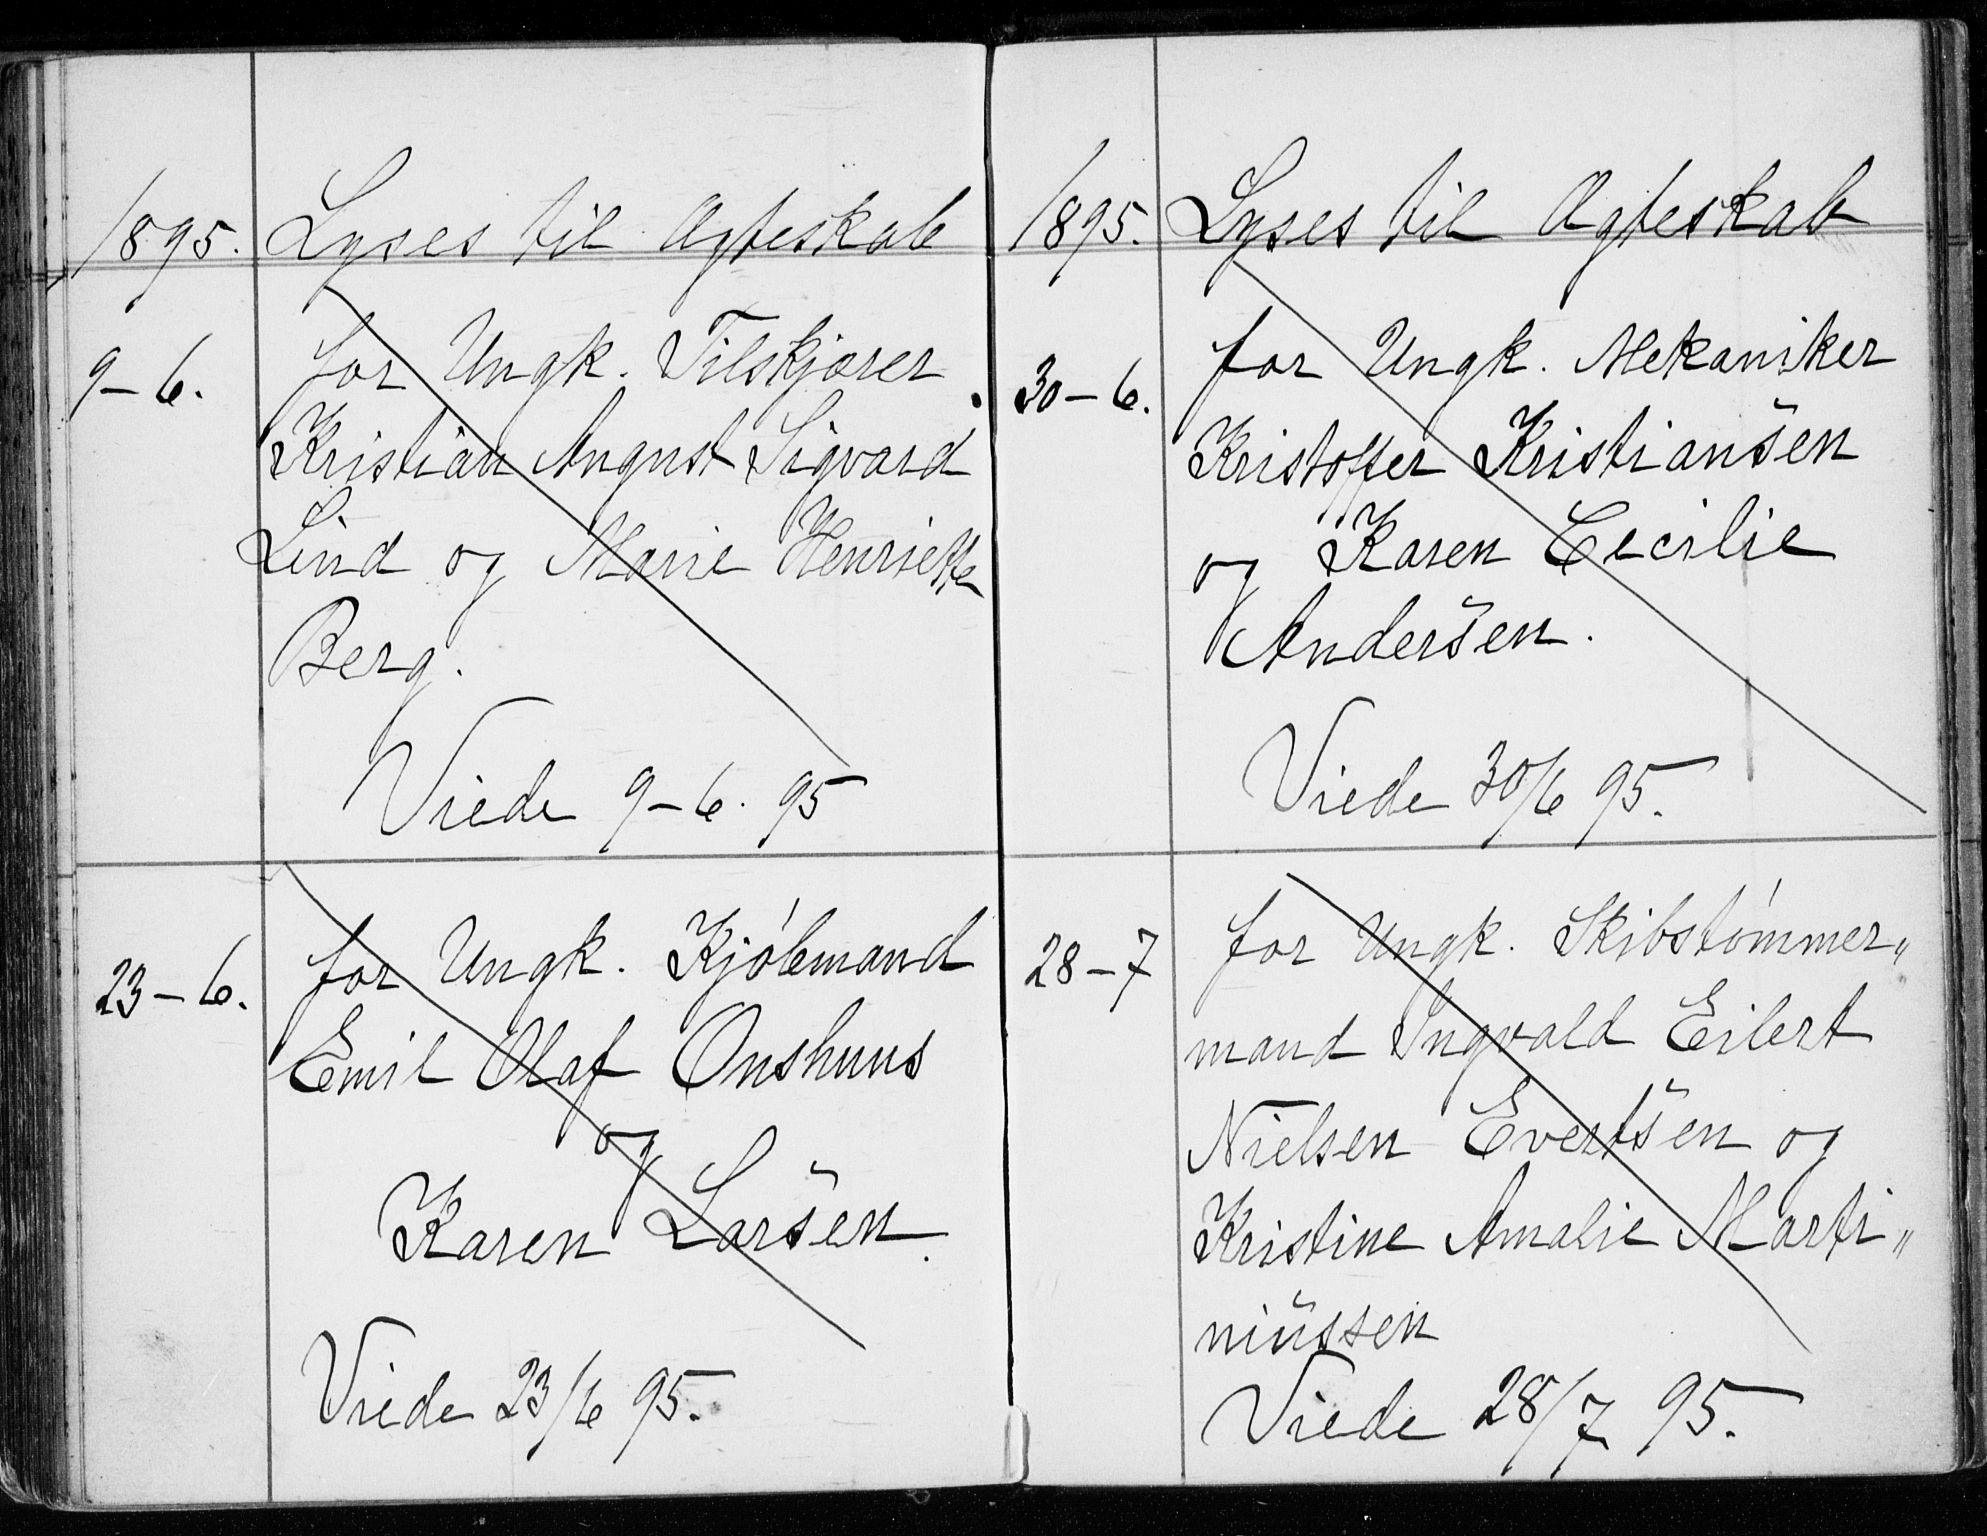 1895. Lyses til Ægteskab
9-6. for Ungk. Tilskjærer
Kristian August Sigvard
Lind og Marie Henriette
Berg.
Viede 9-6. 95
23-6. for Ungk. Kjöbmand
Emil Olaf Onshuus
og
Karen Larsen.
Viede 23/6 95.
1895. Lyses til Ægteskab
30-6. for Ungk. Mekaniker
Kristoffer Kristiansen
og Karen Cecilie
Andersen.
Viede 30/6 95.
28-7 for Ungk. Skibstömmer„
mand Ingvald Eilert
Nielsen Evertsen og
Kristine Amalie Marti„
niussen
Viede 28/7 95.